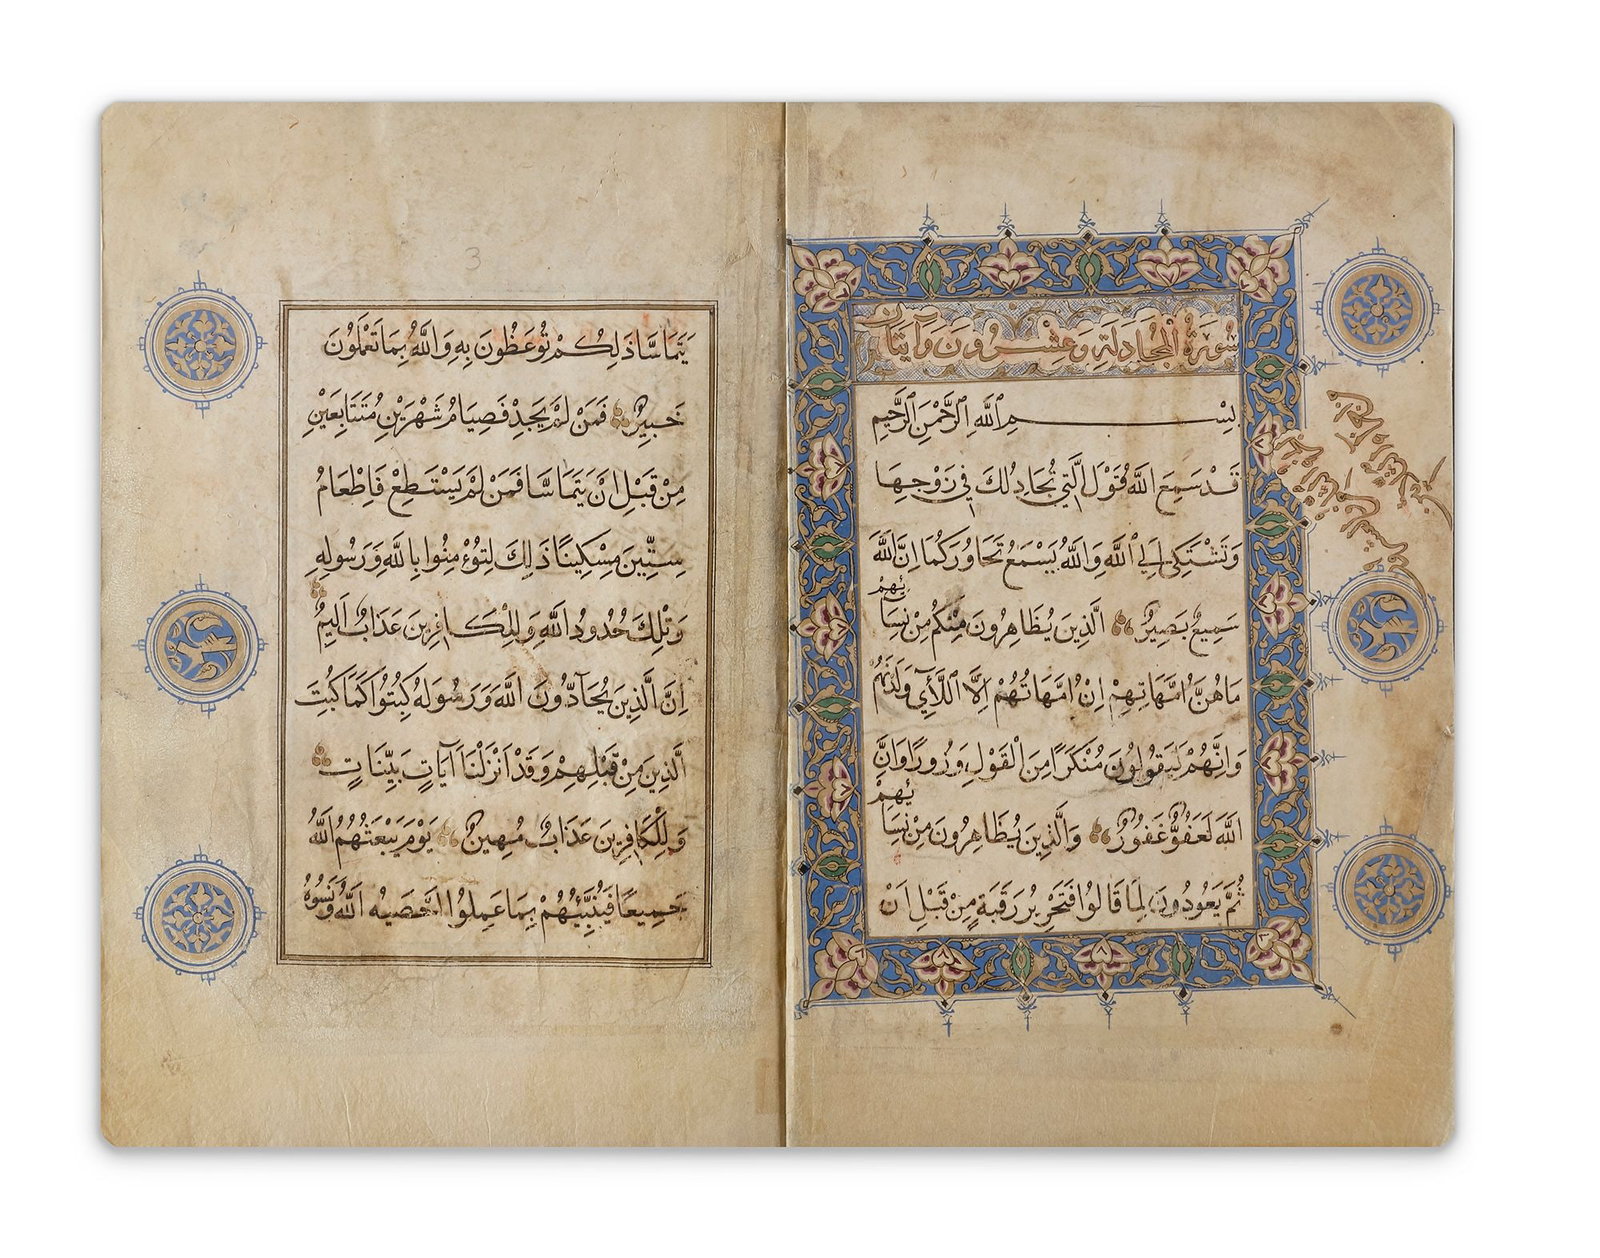 سُورَةُ الْمُجَادِلَةِ وَعِشْرُونَ وَآيَتَانِ
بِسْمِ اللَّهِ الرَّحْمَنِ الرَّحِيمِ
قَدْ سَمِعَ اللَّهُ قَوْلَ الَّتِي تُجَادِلُكَ فِي زَوْجِهَا
وَتَشْتَكِي إِلَى اللَّهِ وَاللَّهُ يَسْمَعُ تَحَاوُرَكُمَا إِنَّ اللَّهَ
سَمِيعٌ بَصِيرٌ الَّذِينَ يُظَاهِرُونَ مِنْكُمْ مِنْ نِسَائِهِمْ
مَا هُنَّ أُمَّهَاتِهِمْ إِنْ أُمَّهَاتُهُمْ إِلَّا اللَّائِي وَلَدْنَهُمْ
وَإِنَّهُمْ لَيَقُولُونَ مُنْكَرًا مِنَ الْقَوْلِ وَزُورًا وَإِنَّ
اللَّهَ لَعَفُوٌّ غَفُورٌ وَالَّذِينَ يُظَاهِرُونَ مِنْ نِسَائِهِمْ
ثُمَّ يَعُودُونَ لِمَا قَالُوا فَتَحْرِيرُ رَقَبَةٍ مِنْ قَبْلِ أَنْ
3
يَتَمَاسَّا ذَلِكُمْ تُوعَظُونَ بِهِ وَاللَّهُ بِمَا تَعْمَلُونَ
خَبِيرٌ فَمَنْ لَمْ يَجِدْ فَصِيَامُ شَهْرَيْنِ مُتَتَابِعَيْنِ
مِنْ قَبْلِ أَنْ يَتَمَاسَّا فَمَنْ لَمْ يَسْتَطِعْ فَإِطْعَامُ
سِتِّينَ مِسْكِينًا ذَلِكَ لِتُؤْمِنُوا بِاللَّهِ وَرَسُولِهِ
وَتِلْكَ حُدُودُ اللَّهِ وَلِلْكَافِرِينَ عَذَابٌ أَلِيمٌ
إِنَّ الَّذِينَ يُحَادُّونَ اللَّهَ وَرَسُولَهُ كُبِتُوا كَمَا كُبِتَ
الَّذِينَ مِنْ قَبْلِهِمْ وَقَدْ أَنْزَلْنَا آيَاتٍ بَيِّنَاتٍ
وَلِلْكَافِرِينَ عَذَابٌ مُهِينٌ يَوْمَ يَبْعَثُهُمُ اللَّهُ
جَمِيعًا فَيُنَبِّئُهُمْ بِمَا عَمِلُوا أَحْصَيهُ اللَّهُ وَنَسُوهُ